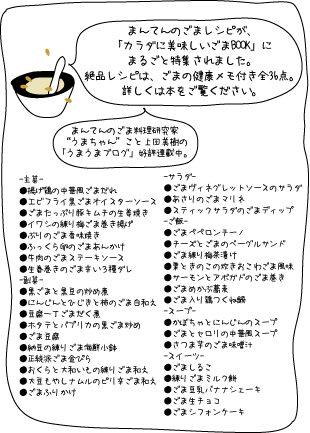 まんてんのごまレシピが、
「カラダに美味しいごまBOOK」に
まるごと特集されました。
絶品レシピは、ごまの健康メモ付き全36点。
詳しくは本をご覧ください。
まんてんのごま料理研究家
“うまちゃん”こと上田美樹の
「うまうまブログ」好評連載中。
-主菜-
●揚げ鶏の中華風ごまだれ
●エビフライ黒ごまオイスターソース
●ごまたっぷり豚キムチの生姜焼き
●イワシの練り梅ごま巻き揚げ
●ぶりのごま香味焼き
●ふっくら卵のごまあんかけ
●牛肉のごまステーキソース
●生春巻きのごま辛い3種ダレ
-副菜-
●黒ごまと黒豆の炒め煮
●にんじんとかじきと柿のごま白和え
●豆腐一丁ごまだく煮
●ホタテとパプリカの黒ごま炒め
●ごま豆腐
●納豆の練りごま海鮮小鉢
●正統派ごま金ぴら
●おくらと大和いもの練りごま和え
●大豆もやしナムルのピリ辛ごま和え
●ごまふりかけ
-サラダ-
●ごまヴィネグレットソースのサラダ
●あさりのごまマリネ
●スティックサラダのごまディップ
-ご飯-
●ごまペペロンチーノ
●チーズとごまのベーグルサンド
●ごま練り梅茶漬け
●栗ときのこの炊きおこわごま風味
●サーモンとアボガドのごま巻き
●ごまめかぶ蕎麦
●ごま入り鶏つくね鍋
-スープ-
●かぼちゃとにんじんのスープ
●ごまとセロリの中華風スープ
●さつま芋のごま味噌汁
-スイーツ-
●ごましるこ
●練りごまミルク餅
●ごま豆乳バナナシェーキ
●ごま生チョコ
●ごまシフォンケーキ